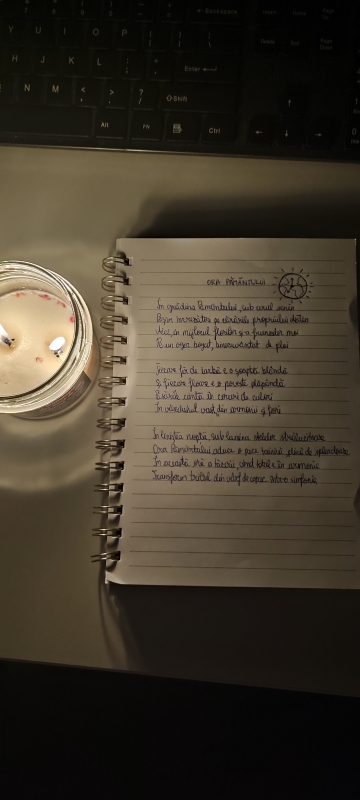 Backspace
Home
Page Up
Y U I O P { }
Delete
End
Page Down
H J K L : "
Enter
N M < > ?
Shift
Alt
FN
Ctrl
ORA PĂMÂNTULUI
În grădina Pământului, sub cerul senin
Pășim încrezători pe cărările propriului destin
Aici, în mijlocul florilor și a frunzelor moi
Pe un oraș bogat, de ploi
Fiecare fir de iarbă e o șoaptă blândă
Și fiecare floare e o poveste plăpândă
Păsările cântă în coruri de culori
În văzduhul vast, din armonii și flori
În liniștea nopții, sub lumina stelelor strălucitoare
Ora Pământului aduce o pace tainică plină de splendoare
În această oră a tăcerii, când totul e în armonie
Transform traiul din vârf de copac într-o simfonie